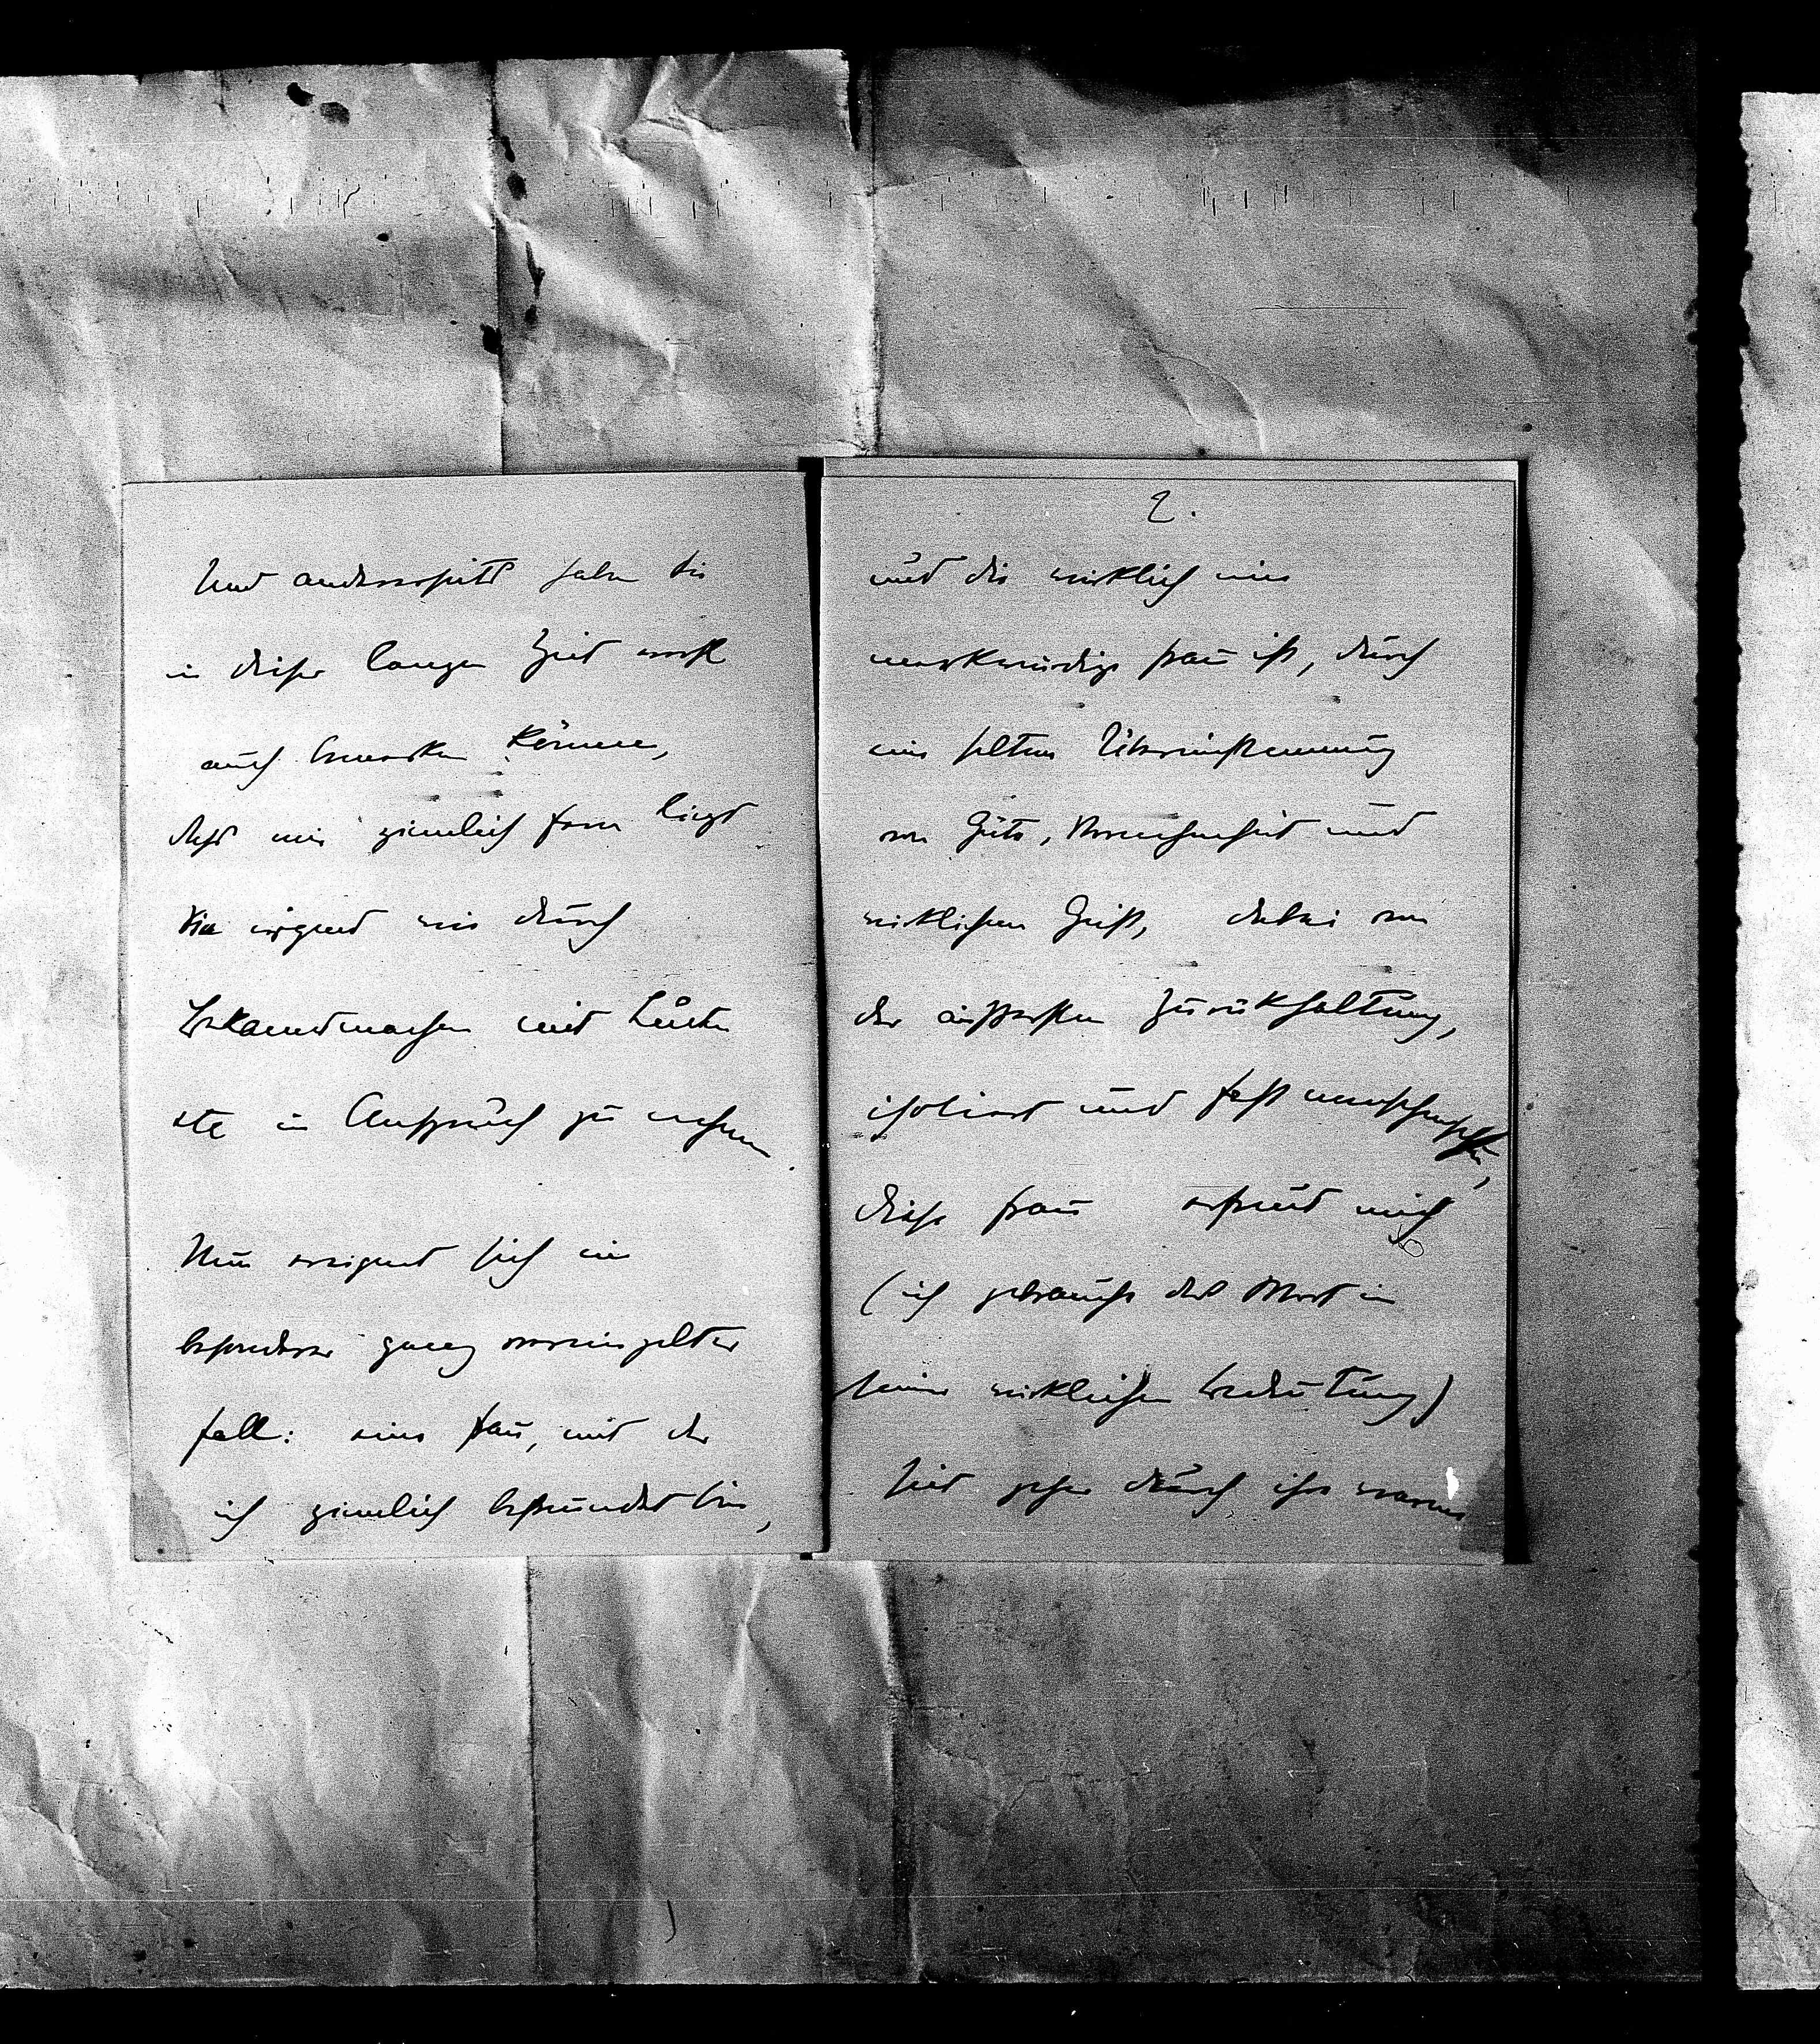 Und andererseits haben Sie
in dieser langen Zeit wohl
auch bemerken können,
dass mir ziemlich fern liegt
Sie irgend wie durch
Bekanntmachen mit Leuten
etc in Anspruch zu nehmen.
Nun ereignet sich ein
besonderer ganz vereinzelter
Fall: eine Frau, mit der
ich ziemlich befreundet bin,
2.
und die wirklich eine
merkwürdige Frau ist, durch
eine seltene Übereinstimmung
von Güte, Vornehmheit und
wirklichem Geist, dabei von
der äussersten Zurükhaltung,
isoliert und fast menschenscheu,
diese Frau erfreut mich
(ich gebrauche das Wort in
seiner wirklichen Bedeutung)
seit jeher durch ihre warme